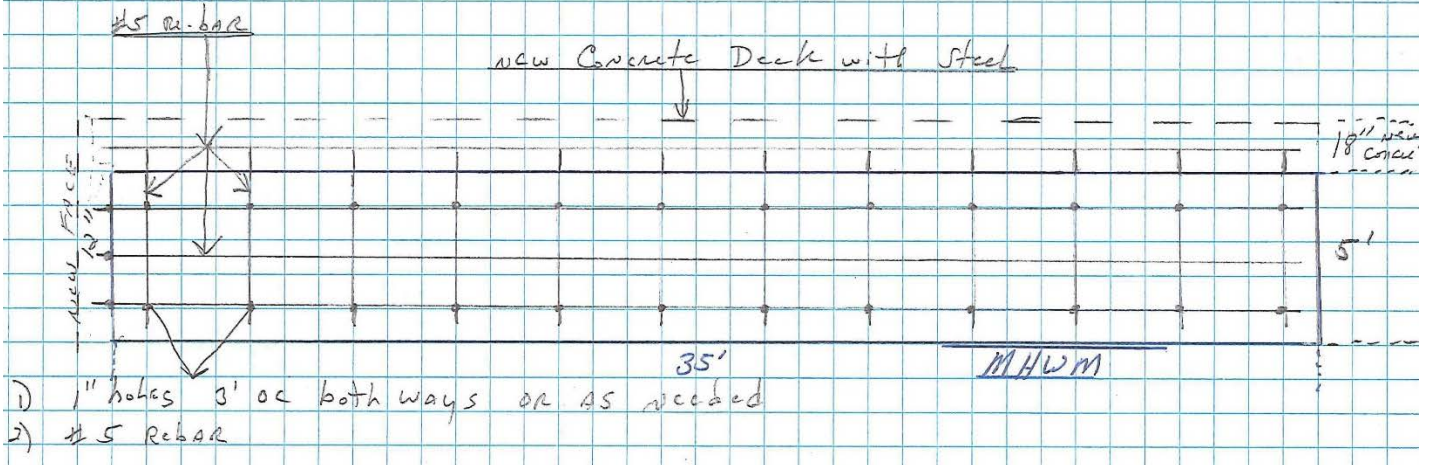 #5 Re-bAR
new Concrete Deck with Steel
18" new
NEW FACE
12"
5'
35'
MHWM
1) 1" holes 3' oc both ways OR AS needed
2) #5 RebAR